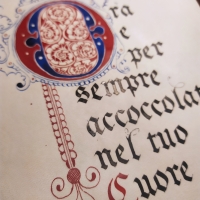 Ora
e
per
sempre
accoccolat
nel tuo
Cuore